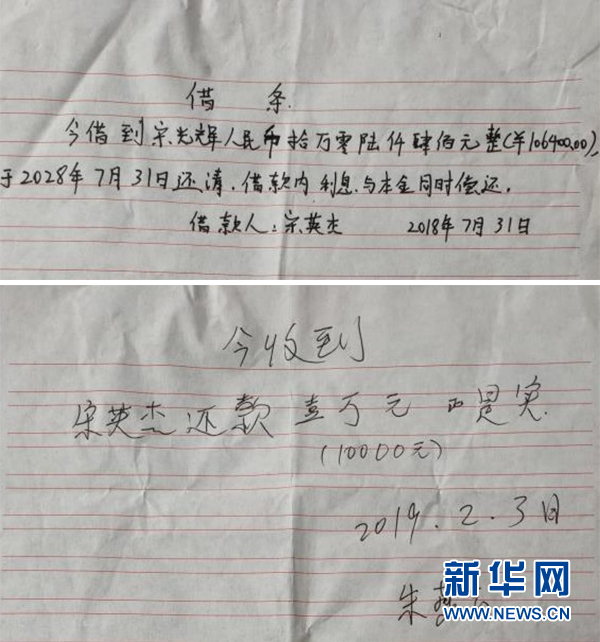 借 条
今借到宋光辉人民币拾万零陆仟肆佰元整(¥106400.00),
于2028年7月31日还清.借款内利息.与本金同时偿还.
借款人:宋英杰 2018年7月31日
今收到
宋英杰还款壹万元 正是实.
(10000元)
2019.2.3日
朱
新华网
WWW.NEWS.CN